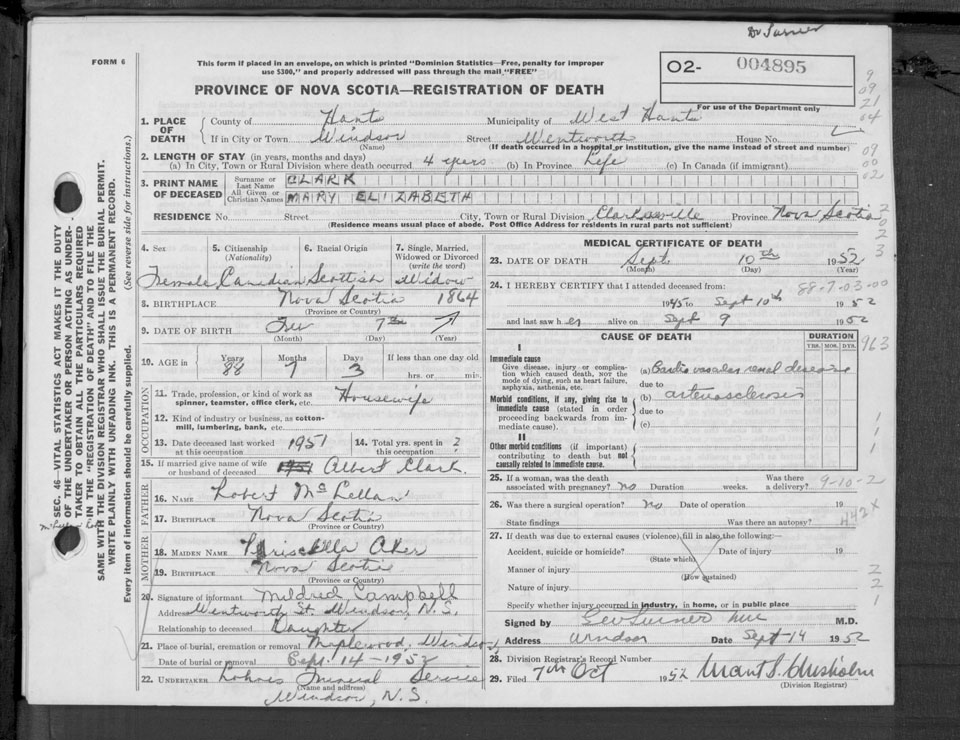 Dr Turner
FORM 6
This form if placed in an envelope, on which is printed "Dominion Statistics—Free, penalty for improper
use $300," and properly addressed will pass through the mail "FREE"
O2- 004895
For use of the Department only
PROVINCE OF NOVA SCOTIA—REGISTRATION OF DEATH
1. PLACE OF DEATH County of Hants Municipality of West Hants
If in City or Town Windsor Street Wentworth House No.
(Name) (If death occurred in a hospital or institution, give the name instead of street and number)
2. LENGTH OF STAY (in years, months and days)
(a) In City, Town or Rural Division where death occurred 4 years (b) In Province Life (c) In Canada (if immigrant)
3. PRINT NAME OF DECEASED Surname or Last Name CLARK
All Given or Christian Names MARY ELIZABETH
RESIDENCE No. Street City, Town or Rural Division Clarksville Province Nova Scotia
(Residence means usual place of abode. Post Office Address for residents in rural parts not sufficient)
4. Sex 5. Citizenship (Nationality) 6. Racial Origin 7. Single, Married, Widowed or Divorced (write the word)
Female Canadian Scottish Widow
8. BIRTHPLACE Nova Scotia 1864
(Province or Country)
9. DATE OF BIRTH 7th
(Month) (Day) (Year)
10. AGE in Years Months Days If less than one day old
88 7 3 hrs. or min.
OCCUPATION
11. Trade, profession, or kind of work as spinner, teamster, office clerk, etc. Housewife
12. Kind of industry or business, as cotton-mill, lumbering, bank, etc.
13. Date deceased last worked at this occupation 1951 14. Total yrs. spent in this occupation ?
15. If married give name of wife or husband of deceased 1951 Albert Clark
FATHER
16. NAME Robert McLellan
17. BIRTHPLACE Nova Scotia
(Province or Country)
MOTHER
18. MAIDEN NAME Priscilla Aker
19. BIRTHPLACE Nova Scotia
(Province or Country)
20. Signature of informant Mildred Campbell
Address Wentworth St. Windsor, N.S.
Relationship to deceased Daughter
21. Place of burial, cremation or removal Maplewood, Windsor,
Date of burial or removal Sept. 14—1952
22. UNDERTAKER Lohnes Funeral Service
(Name and address)
Windsor, N.S.
MEDICAL CERTIFICATE OF DEATH
23. DATE OF DEATH Sept. 10th 1952
(Month) (Day) (Year)
24. I HEREBY CERTIFY that I attended deceased from: 88-7-03-00
1945 to Sept 10th 1952
and last saw her alive on Sept 9 1952
CAUSE OF DEATH DURATION
YRS. MOS. DYS.
963
I
Immediate cause
Give disease, injury or complication which caused death, NOT the mode of dying, such as heart failure, asphyxia, asthenia, etc.
(a) Cardio vascular renal disease
due to
Morbid conditions, if any, giving rise to immediate cause (stated in order proceeding backwards from immediate cause).
(b) arteriosclerosis
due to
(c)
II
Other morbid conditions (if important) contributing to death but not causally related to immediate cause.
25. If a woman, was the death associated with pregnancy? no Duration weeks. Was there a delivery? 9-10-2
26. Was there a surgical operation? no Date of operation 19
State findings Was there an autopsy? 442X
27. If death was due to external causes (violence) fill in also the following—
Accident, suicide or homicide? Date of injury 19
(State which)
Manner of injury
(How sustained)
Nature of injury
Specify whether injury occurred in industry, in home, or in public place
Signed by Geo Turner M.D.
Address Windsor Date Sept-14 1952
28. Division Registrar's Record Number
29. Filed 7th Oct 1952
(Division Registrar)
SEC. 46—VITAL STATISTICS ACT MAKES IT THE DUTY
OF THE UNDERTAKER OR PERSON ACTING AS UNDER-
TAKER TO OBTAIN ALL THE PARTICULARS REQUIRED
IN THE "REGISTRATION OF DEATH" AND TO FILE THE
SAME WITH THE DIVISION REGISTRAR WHO SHALL ISSUE THE BURIAL PERMIT.
WRITE PLAINLY WITH UNFADING INK. THIS IS A PERMANENT RECORD.
Every item of information should be carefully supplied. (See reverse side for instructions.)
9
09
21
04
09
00
02
2
0
2
3
1
1
1
2
2
1